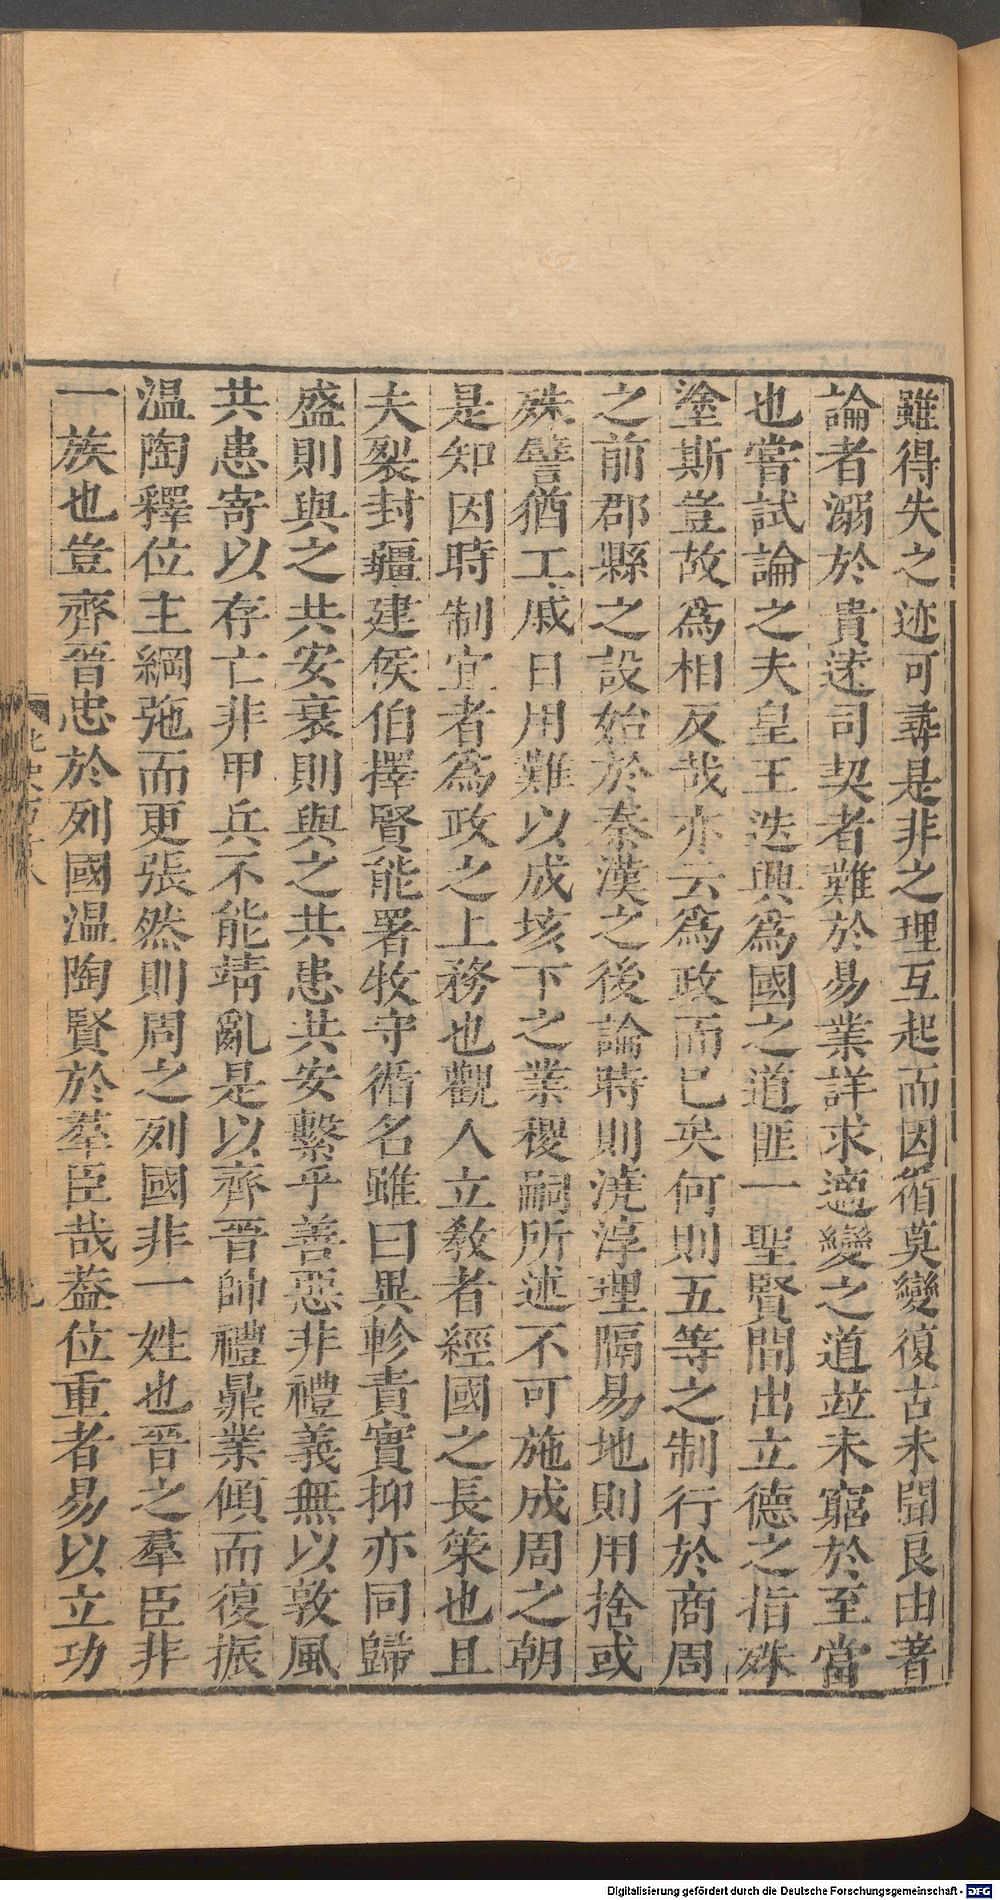 雖得失之迹可尋是非之理互起而因循莫變復古未聞良由著
論者溺於貴逺司契者難於易業詳求適變之道竝未窮於至當
也嘗試論之夫皇王迭興爲國之道匪一聖賢間出立德之指殊
塗斯豈故爲相反哉亦云爲政而已矣何則五等之制行於商周
之前郡縣之設始於秦漢之後論時則澆淳理隔易地則用捨或
殊譬猶工戚日用難以成垓下之業稷嗣所述不可施成周之朝
是知因時制宜者爲政之上務也觀人立教者經國之長策也且
夫裂封疆建侯伯擇賢能署牧守循名雖曰異軫責實抑亦同歸
盛則與之共安衰則與之共患共安繫乎善惡非禮義無以敦風
共患寄以存亡非甲兵不能靖亂是以齊晉帥禮鼎業傾而復振
溫陶釋位主綱弛而更張然則周之列國非一姓也晉之羣臣非
一族也豈齊晉忠於列國溫陶賢於羣臣哉葢位重者易以立功
Digitalisierung gefördert durch die Deutsche Forschungsgemeinschaft - DFG